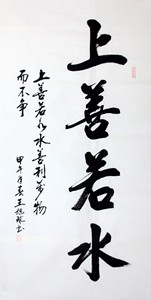 上善若水
上善若水水善利万物
而不争
甲午年春王